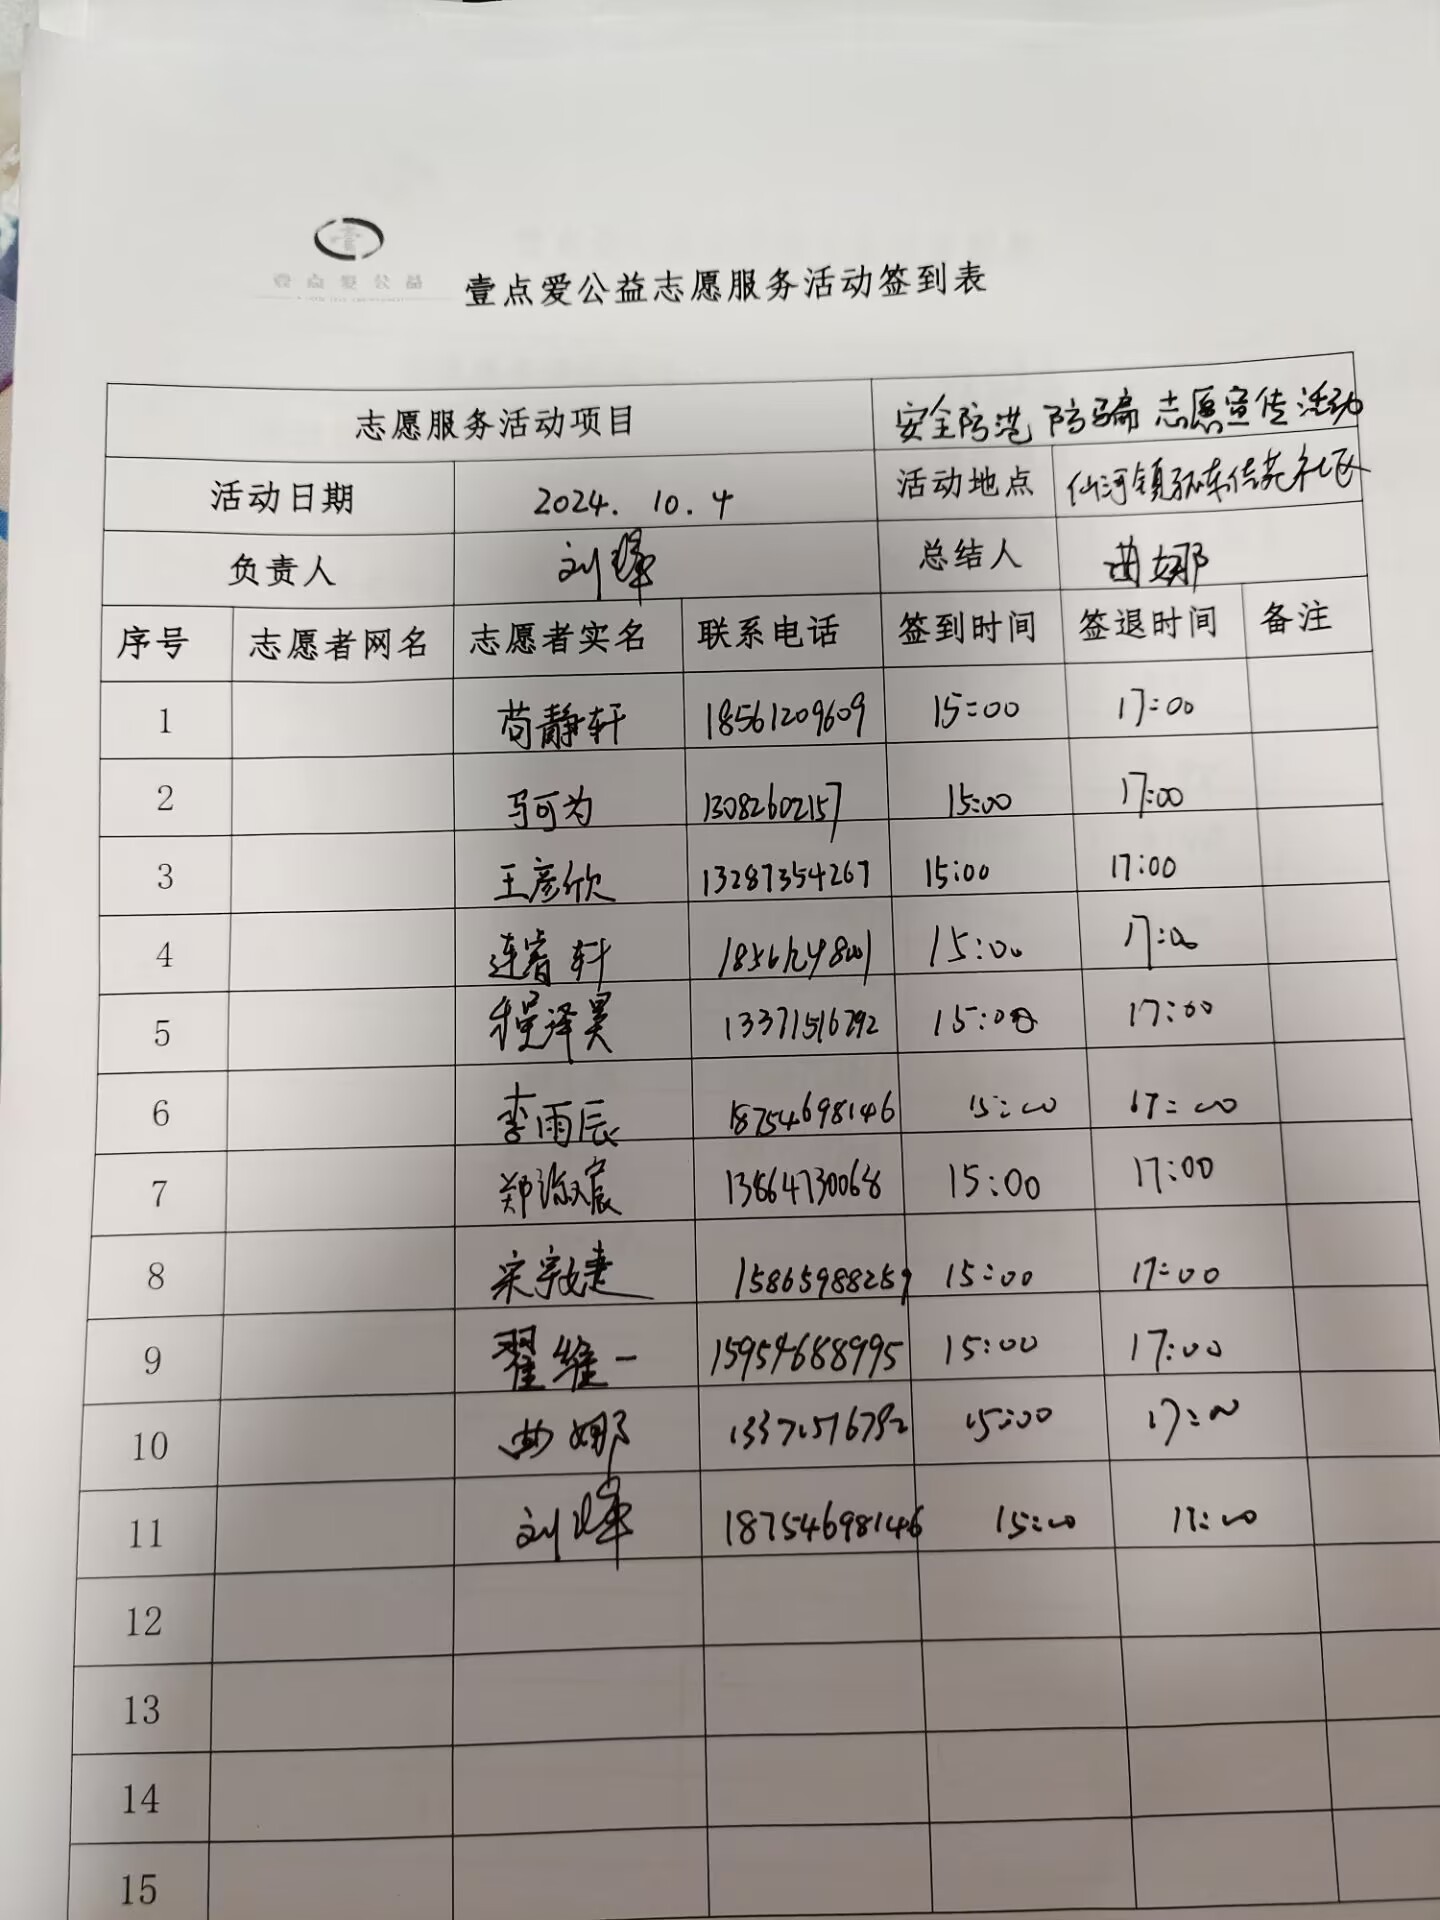 壹点爱公益
壹点爱公益志愿服务活动签到表
志愿服务活动项目 安全防范 防骗 志愿宣传活动
活动日期 2024.10.4 活动地点 仙河镇 社区
负责人 刘 总结人 曲娜
序号 志愿者网名 志愿者实名 联系电话 签到时间 签退时间 备注
1 苟静轩 18561209609 15:00 17:00
2 马可为 13082602157 15:00 17:00
3 王彦欣 13287354267 15:00 17:00
4 连睿轩 15:00 17:00
5 程泽昊 13371516792 15:00 17:00
6 李雨辰 18754698146 15:00 17:00
7 郑 宸 13864730068 15:00 17:00
8 宋 15865988259 15:00 17:00
9 翟维一 15954688995 15:00 17:00
10 曲娜 13371516792 15:00 17:00
11 刘 18754698146 15:00 17:00
12
13
14
15